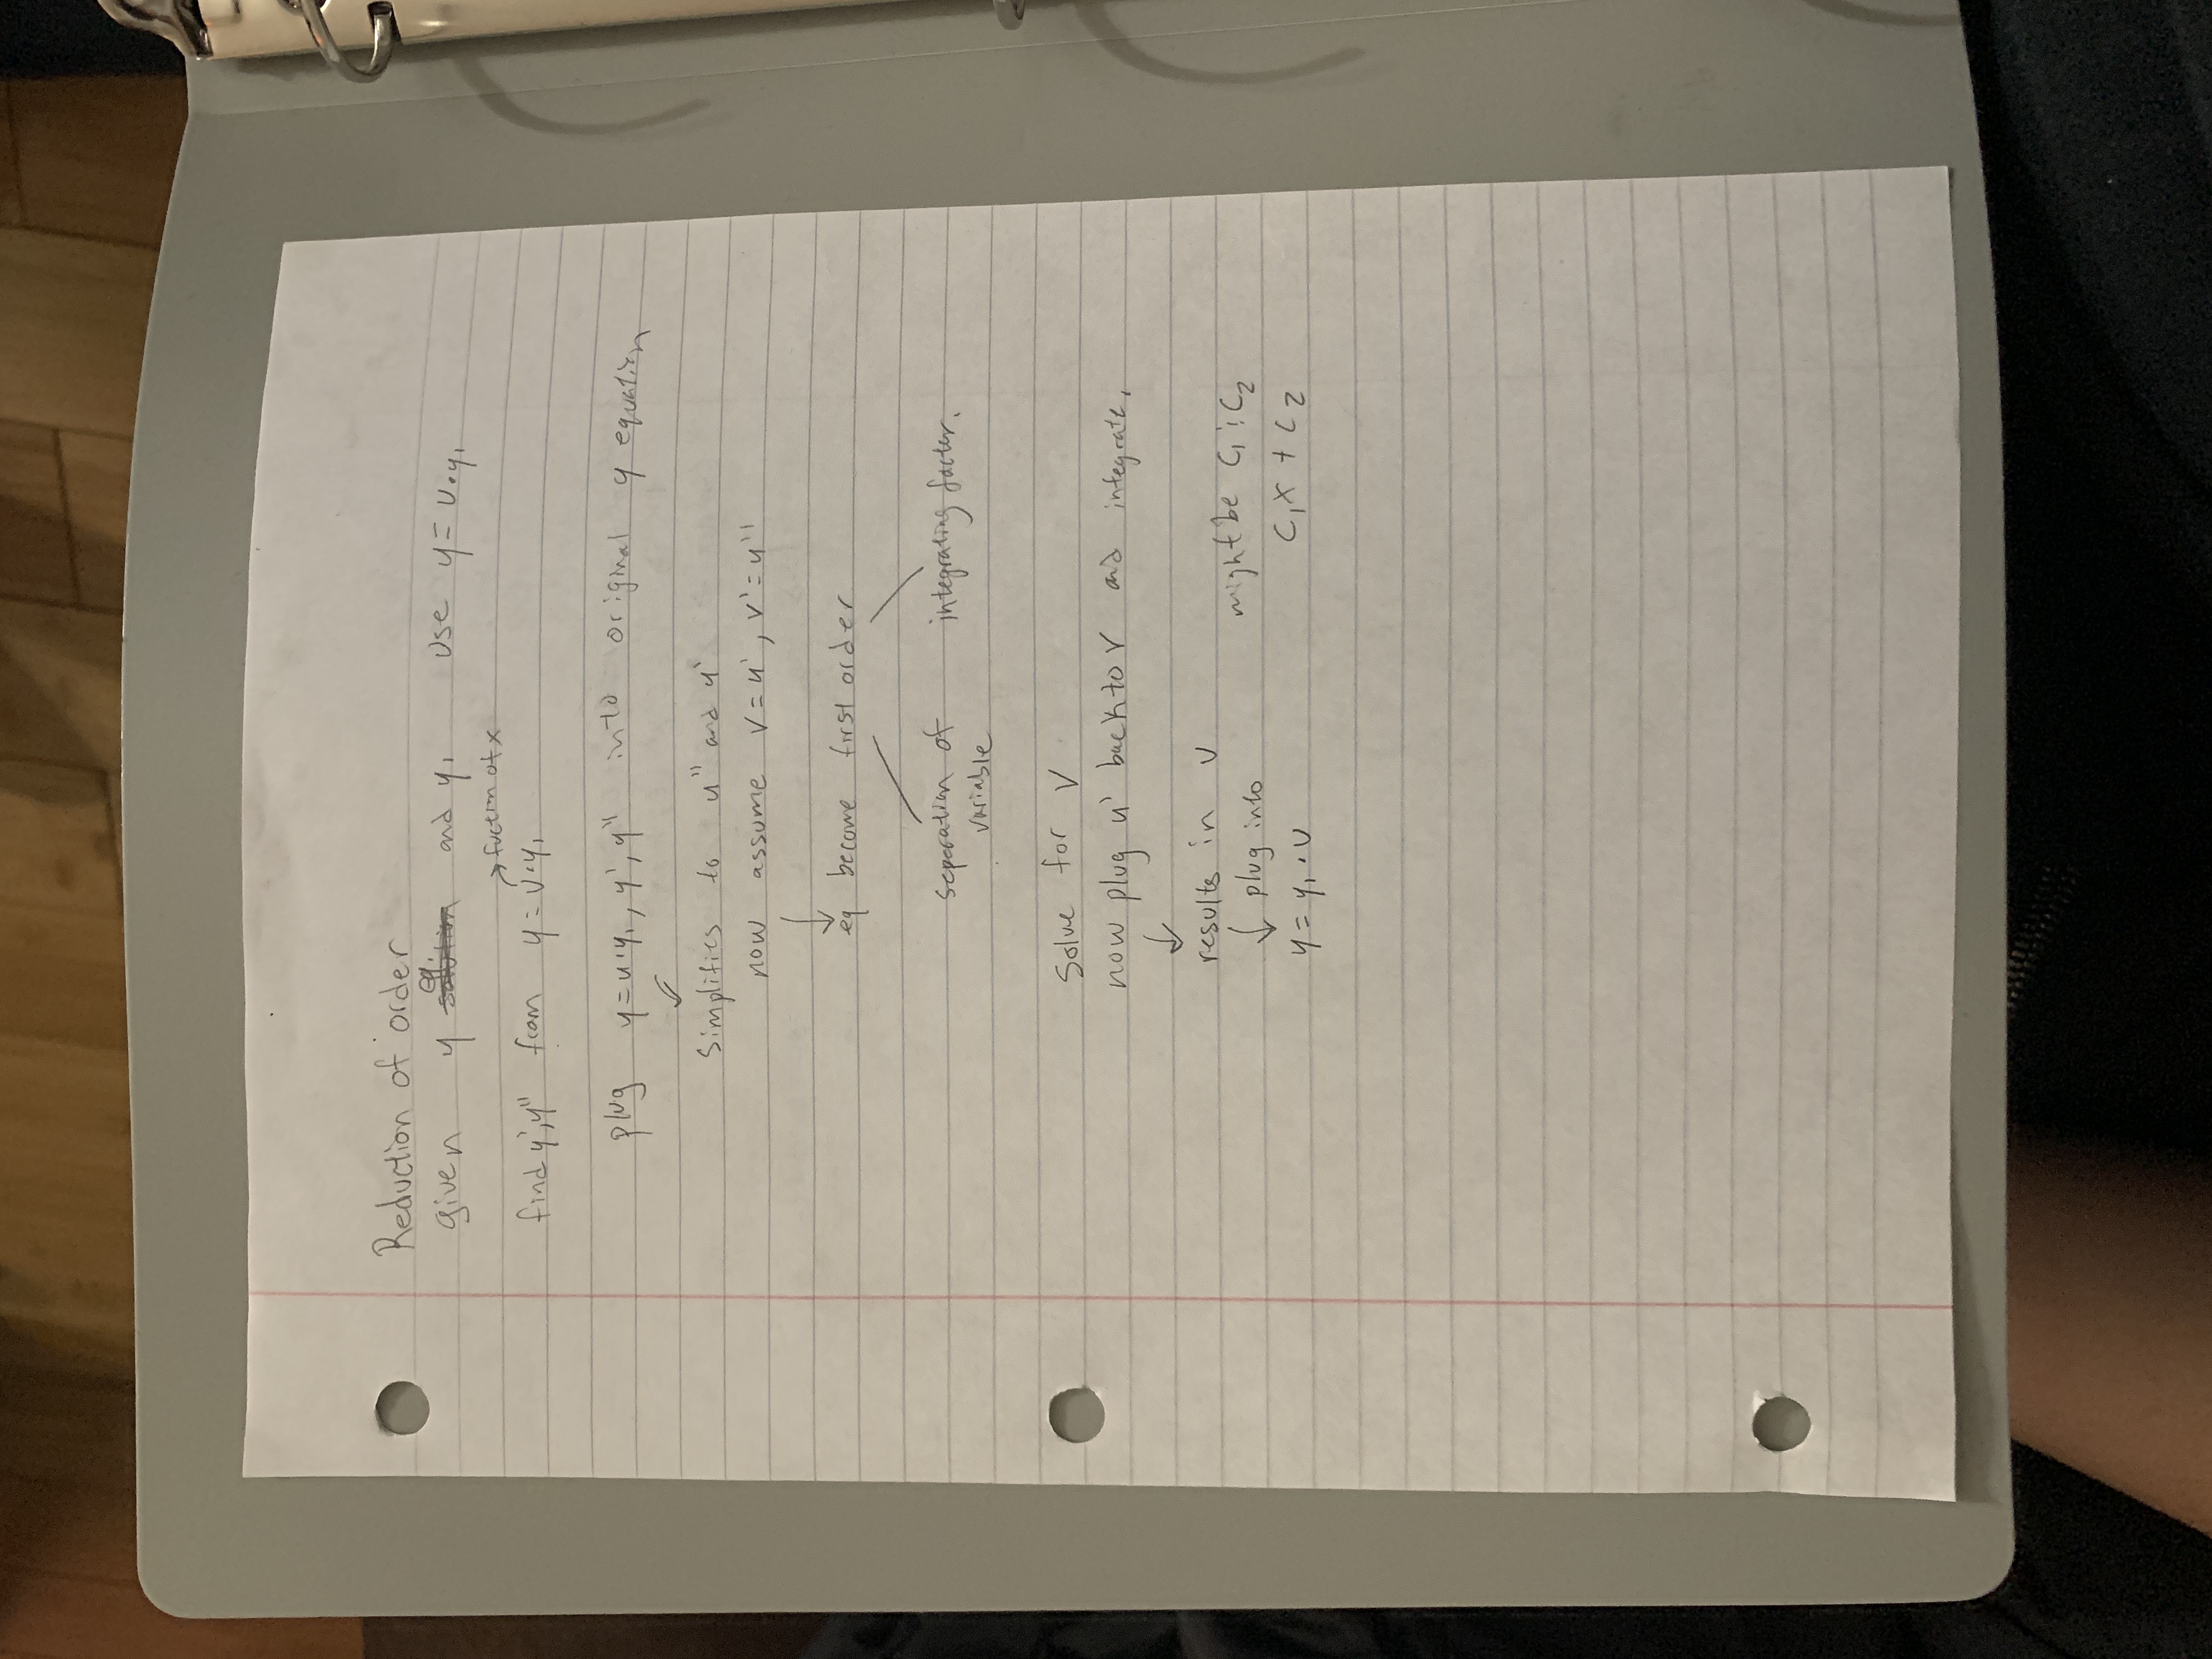 Reduction of order
given y eq. and y₁ Use y = u·y₁
→ fuction of x
find y', y'' from y = u·y₁
plug y = u·y₁, y', y'' into original y equation
Simplifies to u'' and u'
now assume v = u', v' = u''
eq become first order
seperation of integrating factor.
variable
Solve for v
now plug u' back to v and integrate.
results in u
might be C₁ & C₂
plug into
C₁x + C₂
y = y₁·u